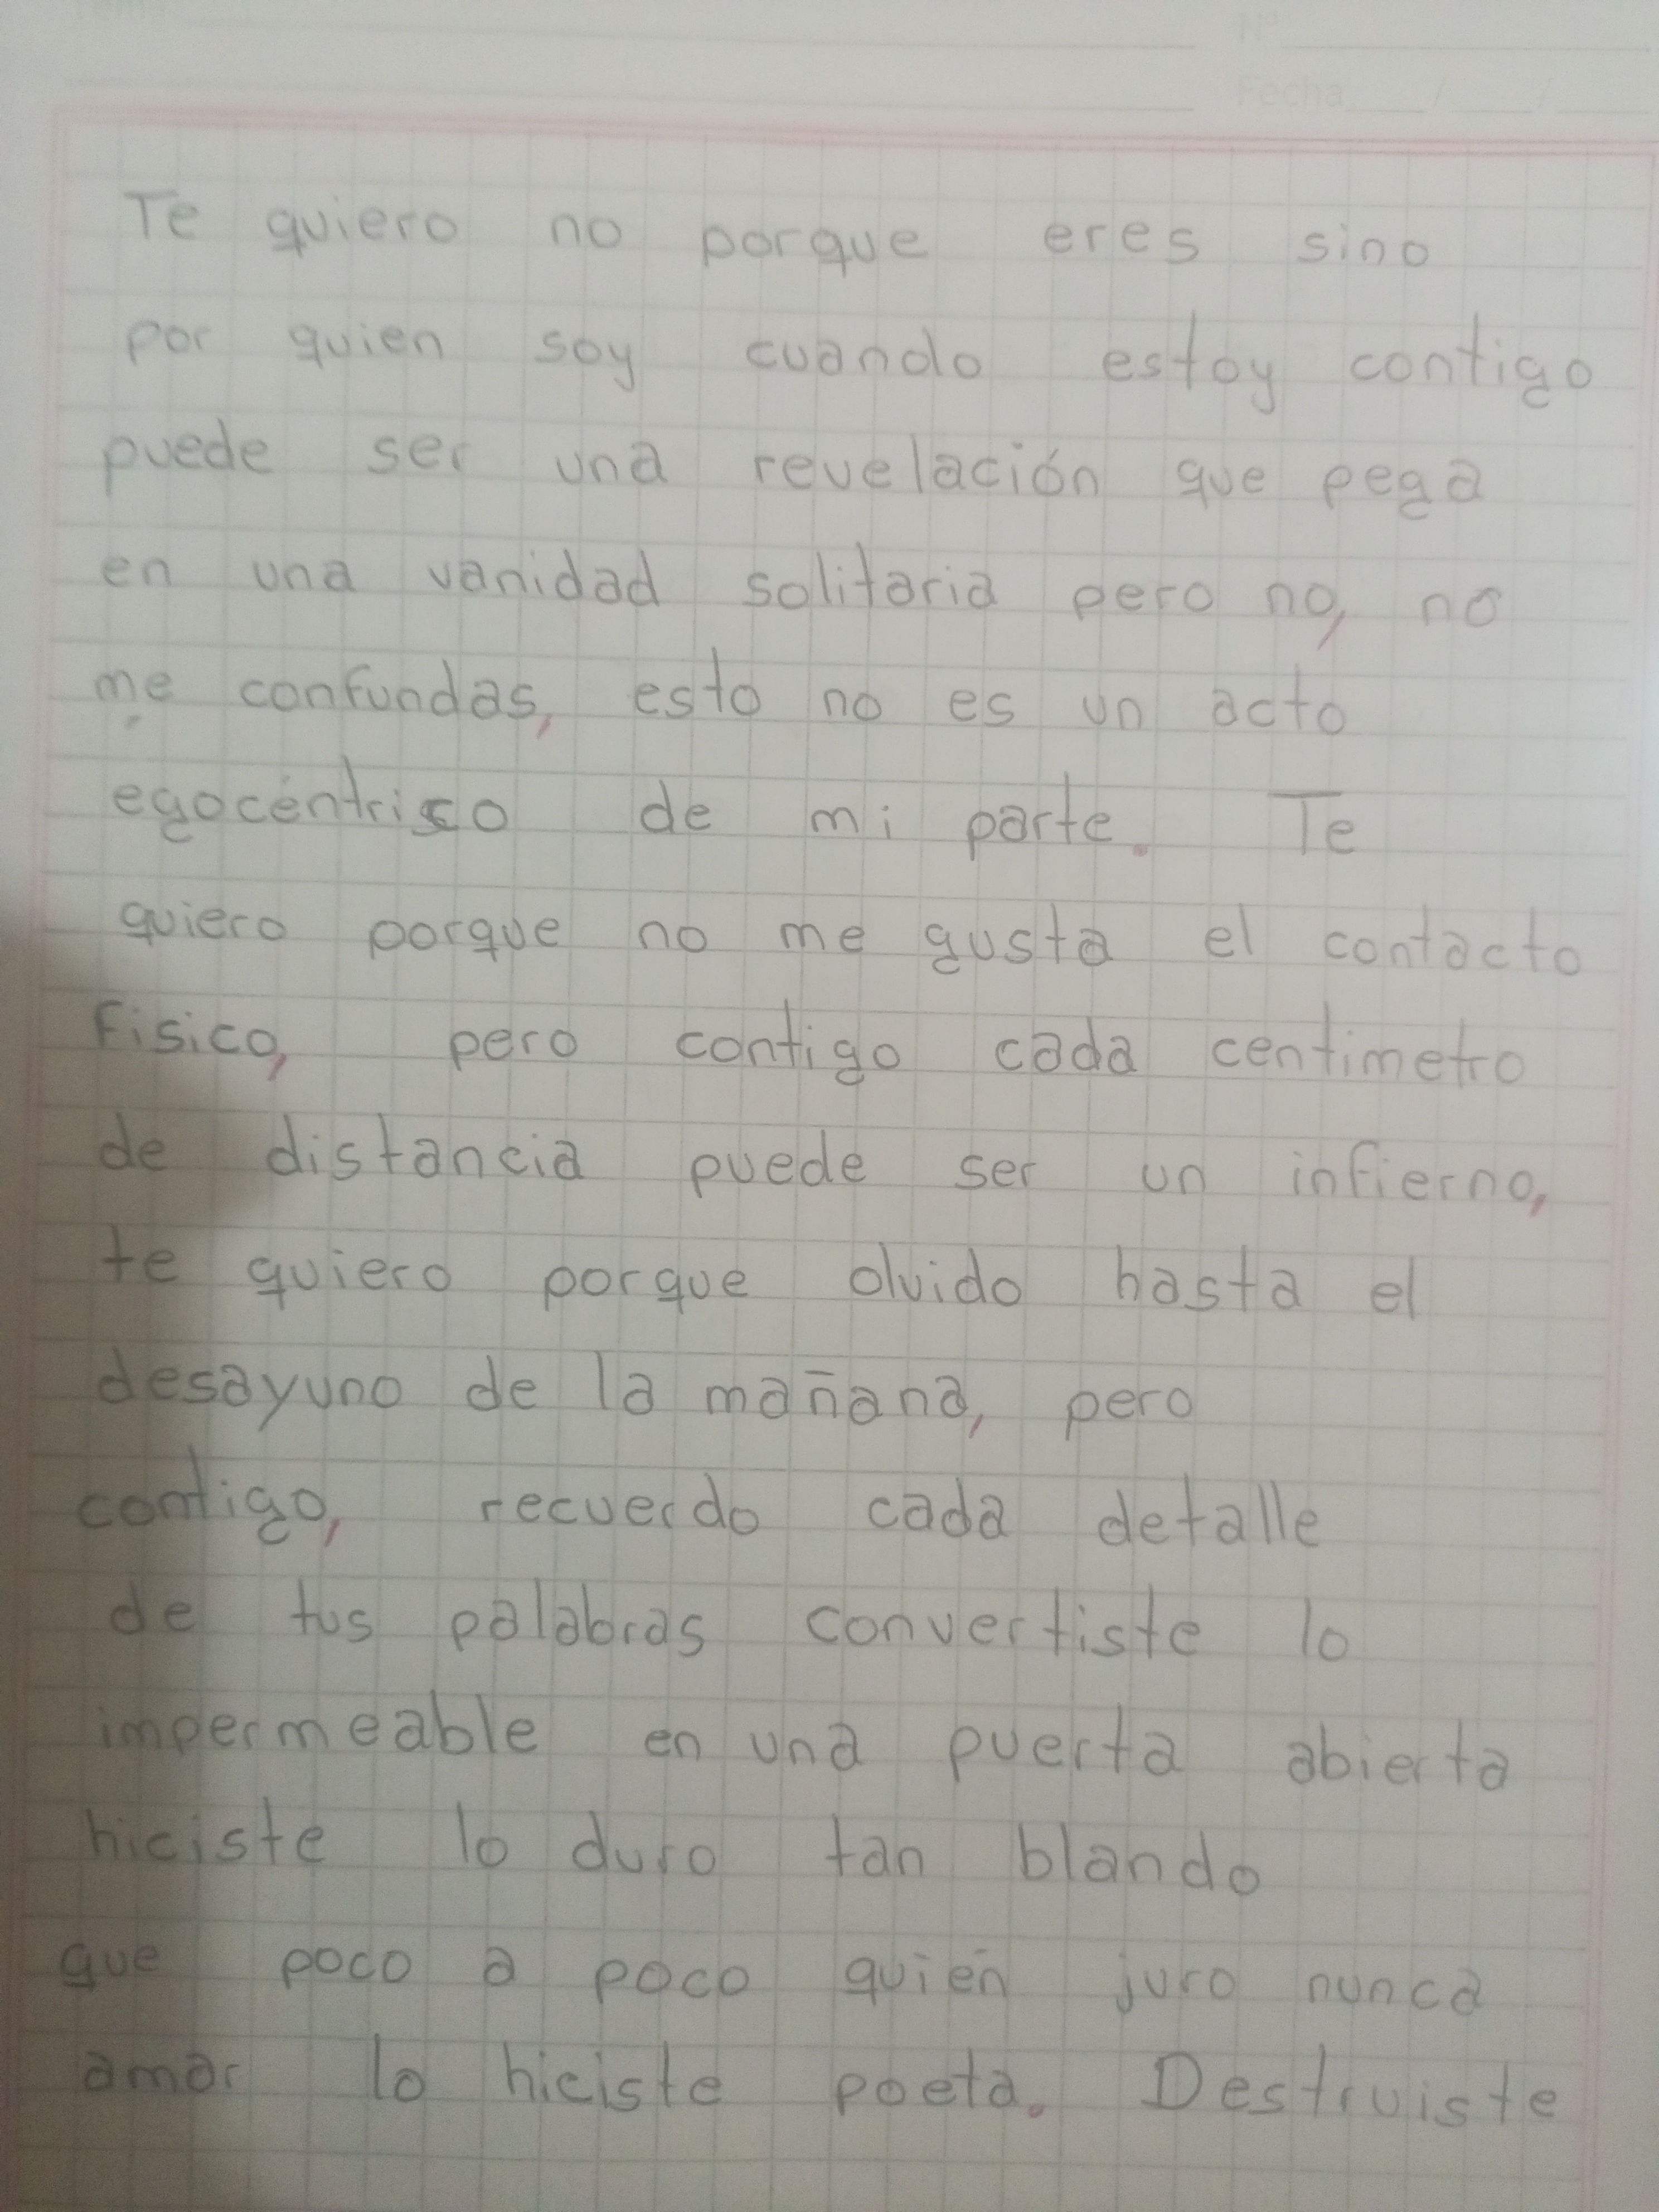 Nº
Fecha / /
Te quiero no porque eres sino
por quien soy cuando estoy contigo
puede ser una revelación que pega
en una vanidad solitaria pero no, no
me confundas, esto no es un acto
egocéntrico de mi parte. Te
quiero porque no me gusta el contacto
Fisico, pero contigo cada centimetro
de distancia puede ser un infierno,
te quiero porque olvido hasta el
desayuno de la mañana, pero
contigo, recuerdo cada detalle
de tus palabras convertiste lo
impermeable en una puerta abierta
hiciste lo duro tan blando
que poco a poco quien juro nunca
amar lo hiciste poeta. Destruiste